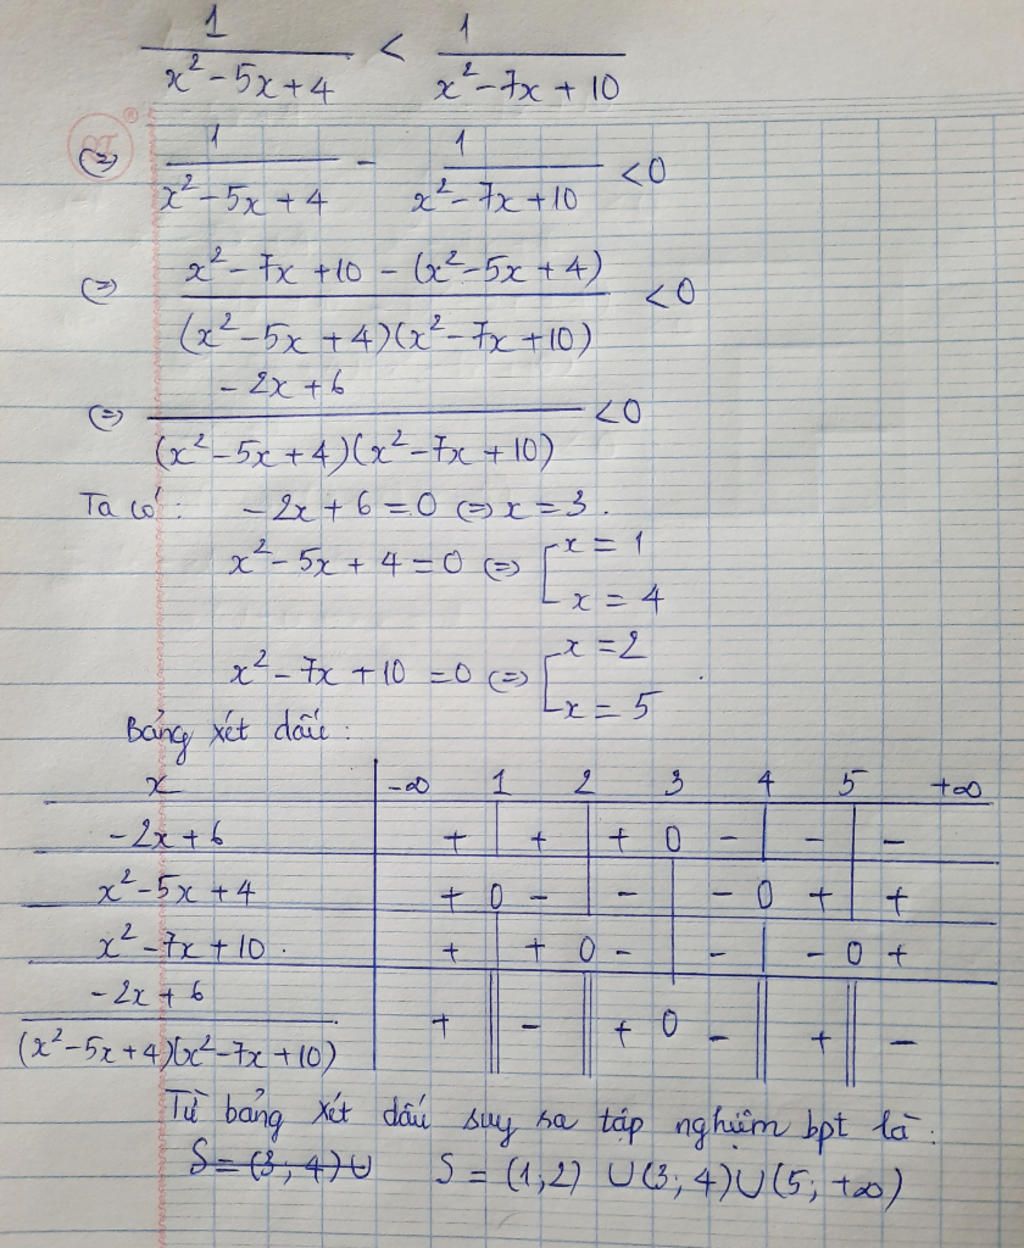 1/(x² - 5x + 4) < 1/(x² - 7x + 10)
(=) 1/(x² - 5x + 4) - 1/(x² - 7x + 10) < 0
(=) (x² - 7x + 10 - (x² - 5x + 4))/((x² - 5x + 4)(x² - 7x + 10)) < 0
(=) (-2x + 6)/((x² - 5x + 4)(x² - 7x + 10)) < 0
Ta có: -2x + 6 = 0 (=) x = 3.
x² - 5x + 4 = 0 (=) [x = 1
x = 4
x² - 7x + 10 = 0 (=) [x = 2
x = 5
Bảng xét dấu:
x | -∞ 1 2 3 4 5 +∞
-2x + 6 | + | + | + 0 - | - | -
x² - 5x + 4 | + 0 - | - | - 0 + | +
x² - 7x + 10. | + | + 0 - | - | - 0 +
(-2x + 6)/((x² - 5x + 4)(x² - 7x + 10)) | + || - || + 0 - || + || -
Từ bảng xét dấu suy ra tập nghiệm bpt là:
S = (3; 4) ∪ S = (1; 2) ∪ (3; 4) ∪ (5; +∞)